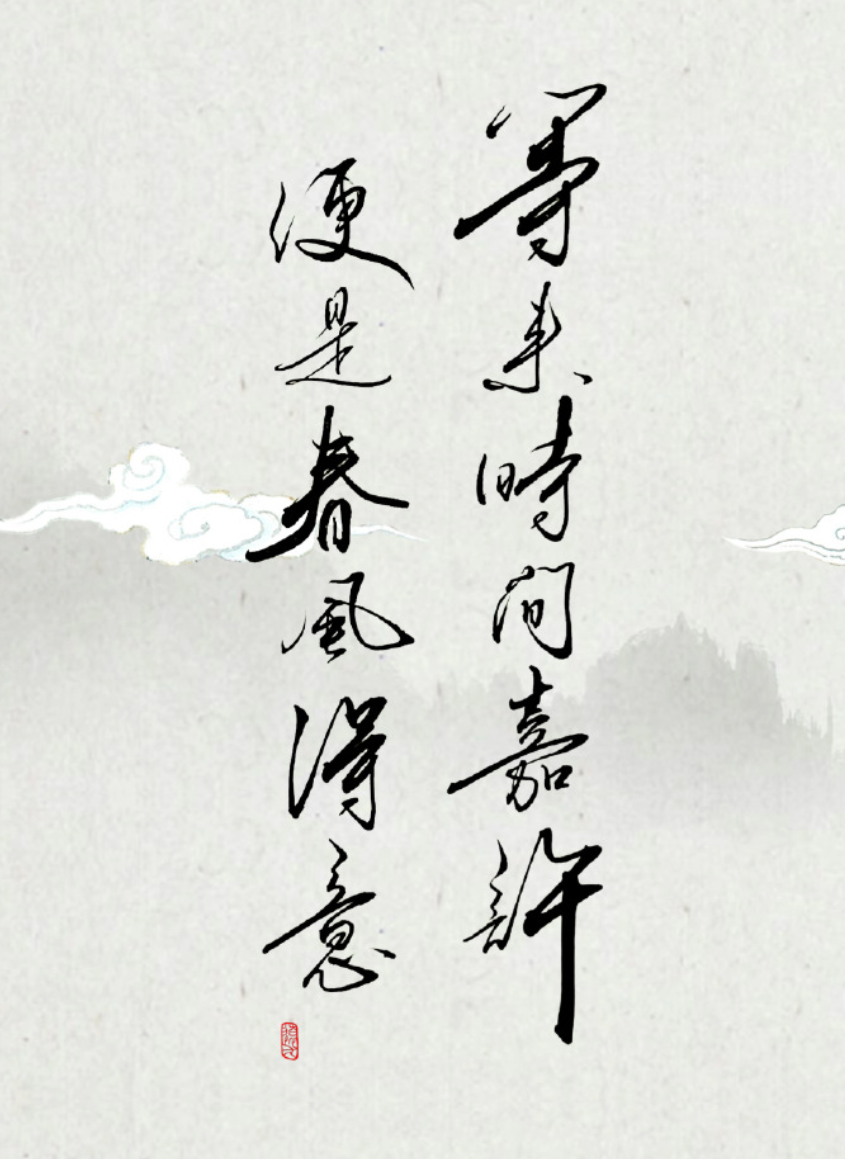 等来時间嘉許
便是春風得意